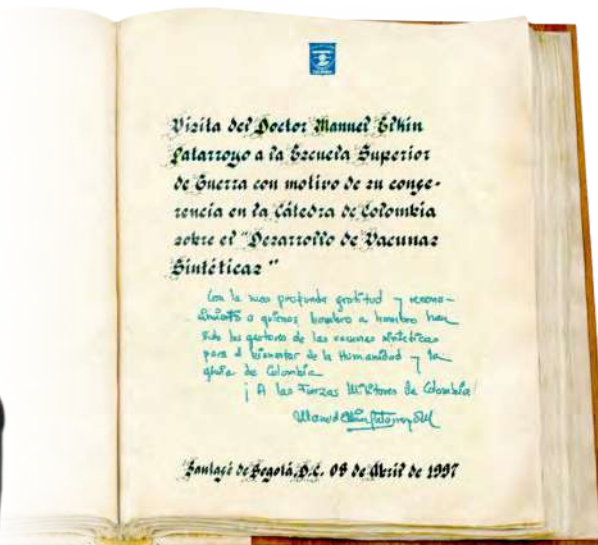 Visita del Doctor Manuel Elkin
Patarroyo a la Escuela Superior
de Guerra con motivo de su confe-
rencia en la Cátedra de Colombia
sobre el "Desarrollo de Vacunas
Sintéticas"
Con la mas profunda gratitud y recono-
cimiento a quienes hombro a hombro han
sido los gestores de las vacunas sintéticas
para el bienestar de la Humanidad y la
gloria de Colombia
¡A las Fuerzas Militares de Colombia!
Manuel Elkin Patarroyo M
Santafé de Bogotá, D.C. 08 de Abril de 1997